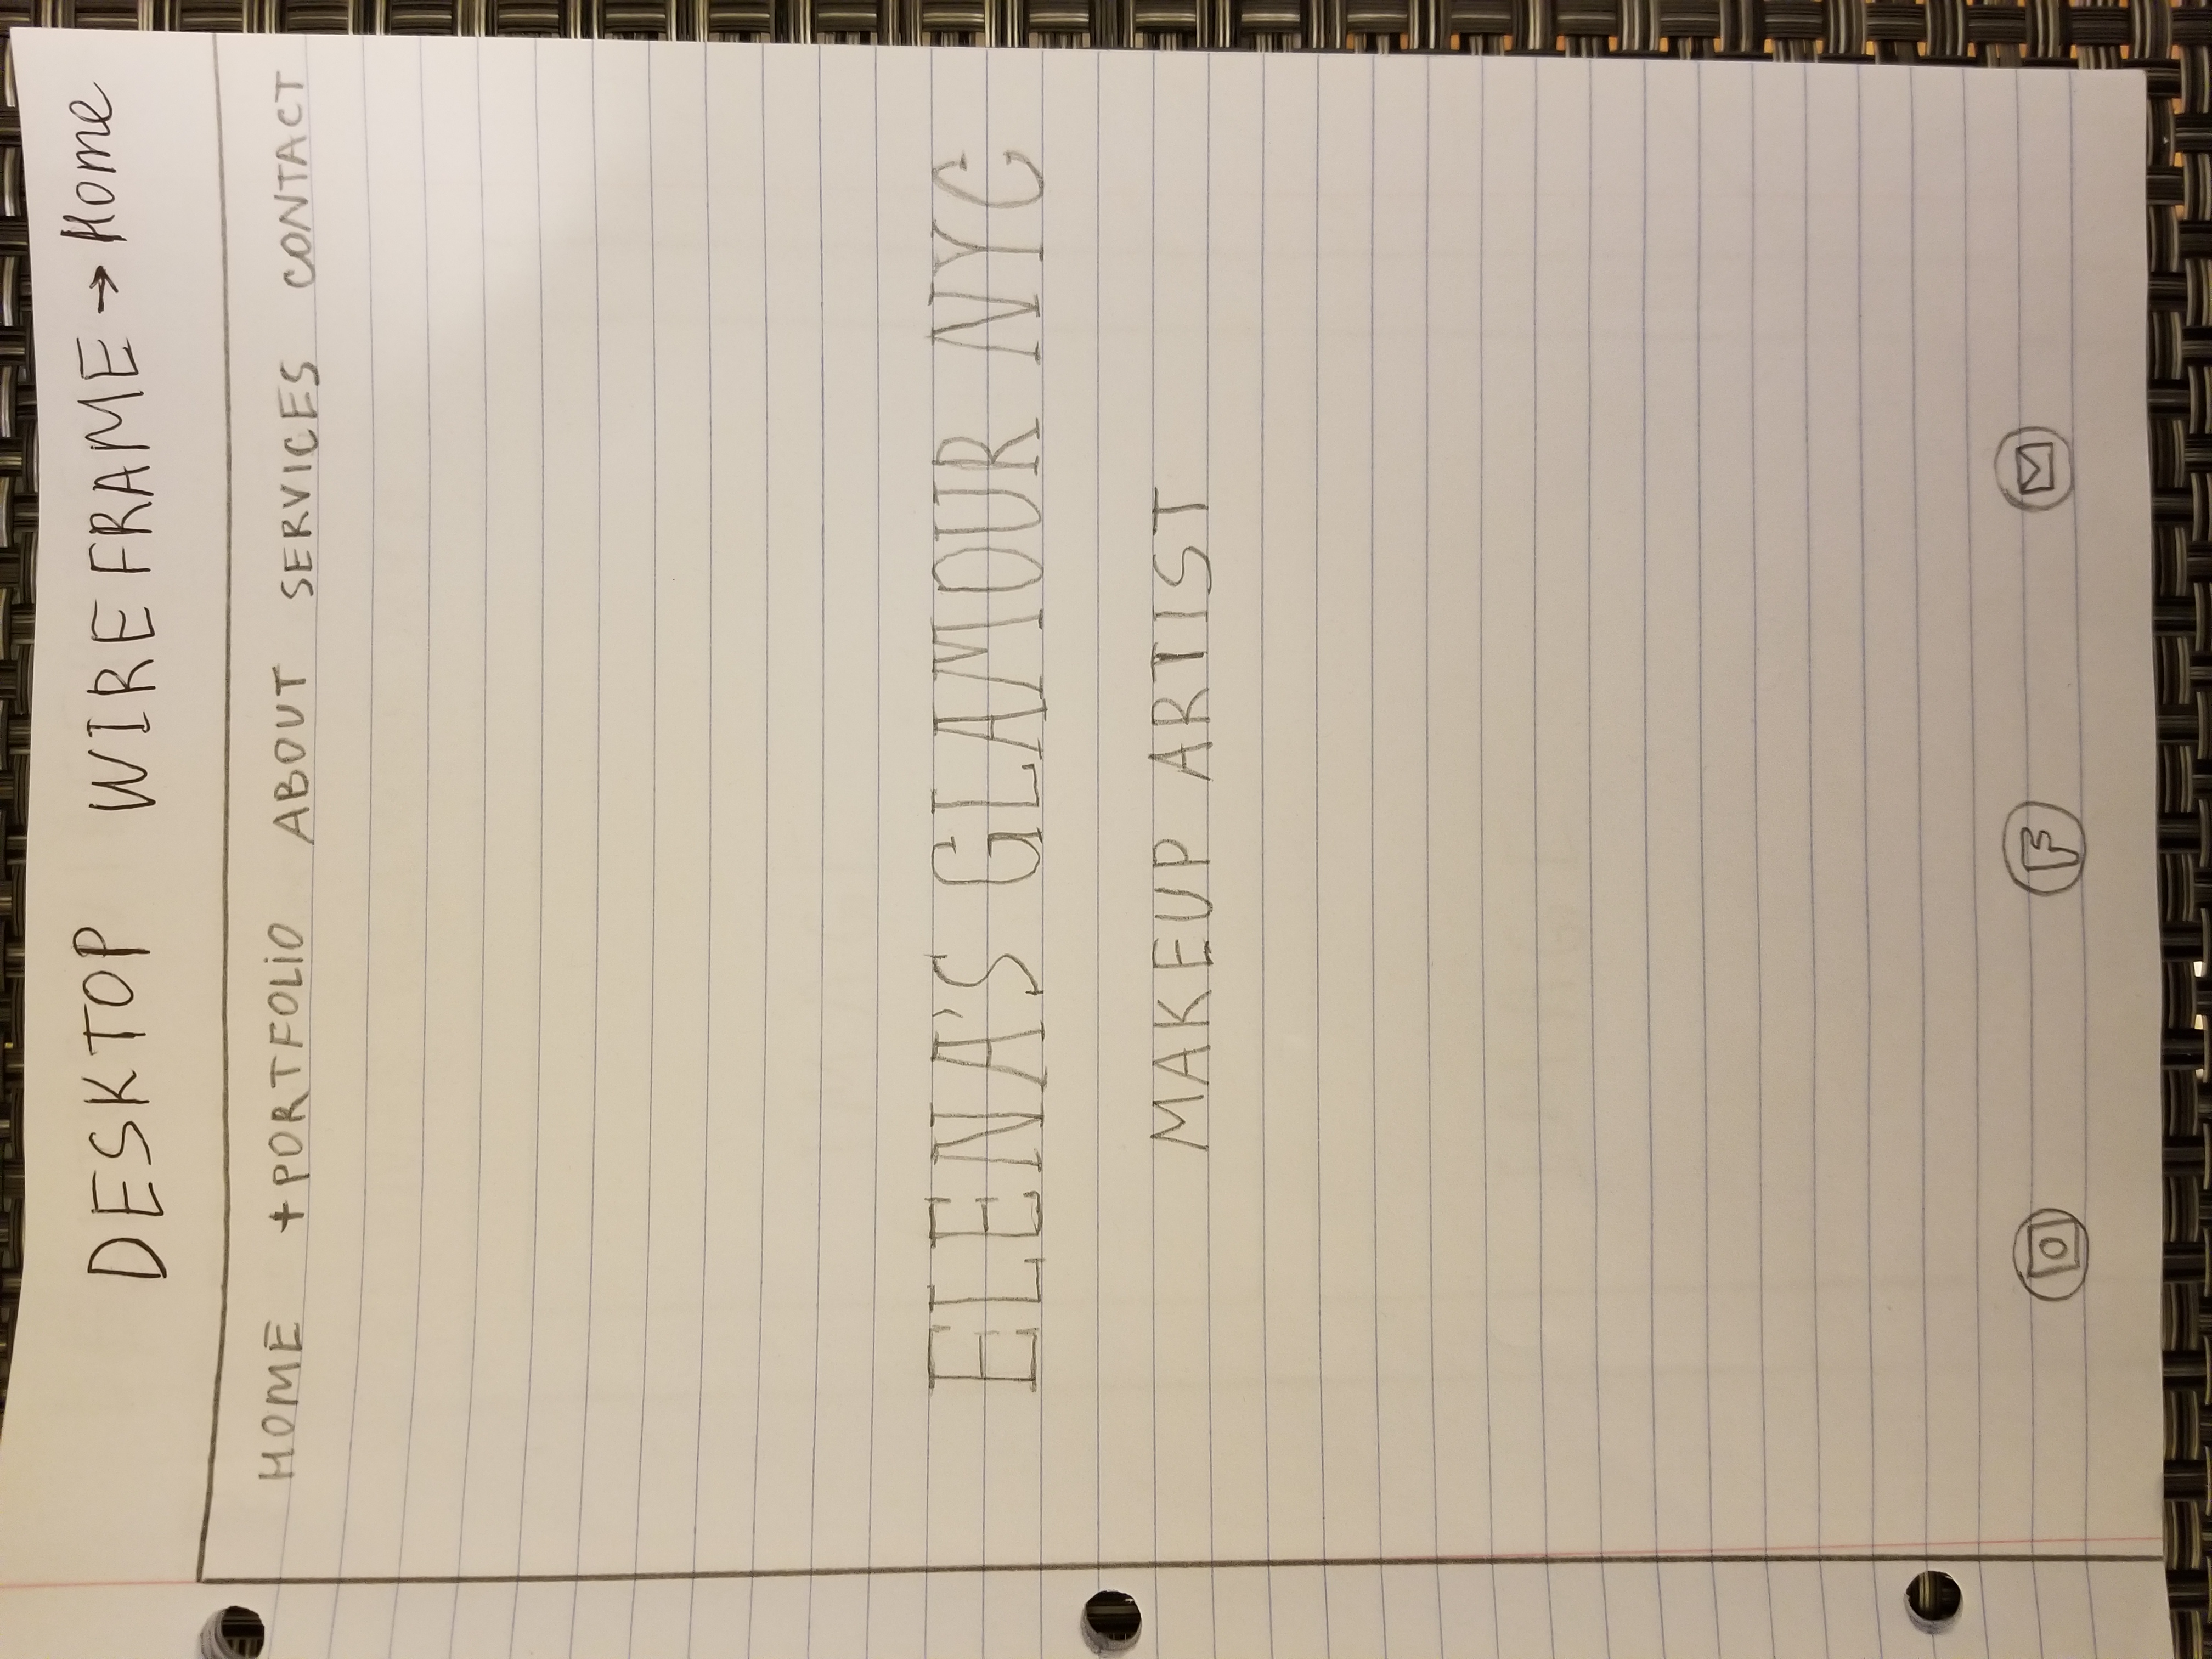 DESKTOP WIREFRAME → Home
HOME +PORTFOLIO ABOUT SERVICES CONTACT
ELENA'S GLAMOUR NYC
MAKEUP ARTIST
F